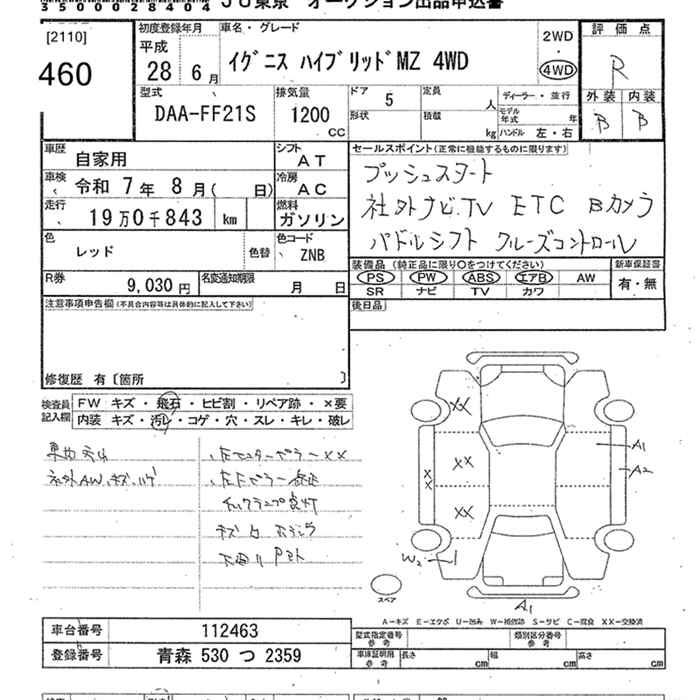 35000028404 JU東京 オークション出品申込書
[2110]
460
初度登録年月
平成
28年 6月
車名・グレード
イグニス ハイブリッドMZ 4WD
2WD
4WD
評価点
R
外装 内装
B B
型式
DAA-FF21S
排気量
1200
CC
ドア 5
形状
定員 人
積載 kg
ディーラー・並行
モデル年式 年
ハンドル 左・右
車歴
自家用
シフト
AT
車検
令和 7年 8月( 日)
冷房
AC
走行
19万0千843 km
燃料
ガソリン
色
レッド
色替
色コード
ZNB
R券
9,030円
名変通知期限
月 日
セールスポイント(正常に機能するものに限ります)
プッシュスタート
社外ナビ.TV ETC Bカメラ
パドルシフト クルーズコントロール
装備品(純正品に限り○をつけてください)
PS PW ABS エアB AW
SR ナビ TV カワ
新車保証書
有・無
後日品
注意事項申告欄(不具合内容等は具体的に記入して下さい)
修復歴 有〔箇所 〕
検査員記入欄
FW キズ・飛石・ヒビ割・リペア跡・×要
内装 キズ・汚レ・コゲ・穴・スレ・キレ・破レ
社外AW.キズ.ハゲ
XX
XX
XX
XX
A1
A2
W2
A1
スペア
A-キズ E-エクボ U-凹み W-補修跡 S-サビ C-腐食 XX-交換済
車台番号 112463
登録番号 青森 530 つ 2359
型式指定番号
参考
類別区分番号
参考
車庫証明用
参考
長さ cm
幅 cm
高さ cm